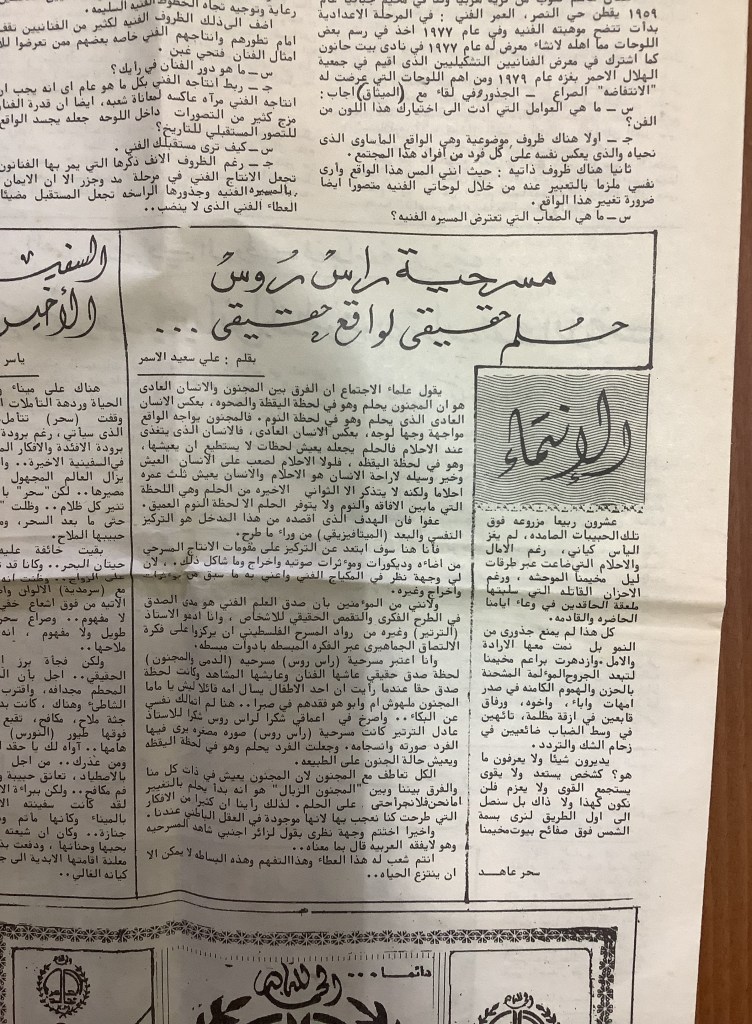 ١٩٥٩ يقطن حي النصر، العمر الفني : في المرحلة الاعدادية
بدأت تتضح موهبته الفنيه وفي عام ١٩٧٧ اخذ في رسم بعض
اللوحات مما اهله لانشاء معرض له عام ١٩٧٧ في نادى بيت حانون
كما اشترك في معرض الفنانيين التشكليين الذى اقيم في جمعية
الهلال الاحمر بغزه عام ١٩٧٩ ومن اهم اللوحات التي عرضت له
"الانتفاضه" الصراع ــ الجذور، في لقاء مع (الميثاق) اجاب :
س ــ ما هي العوامل التي ادت الى اختيارك هذا اللون من
الفن؟
جـ ــ اولا هناك ظروف موضوعية وهي الواقع المأساوى الذى
نحياه والذى يعكس نفسه على كل فرد من أفراد هذا المجتمع .
ثانيا هناك ظروف ذاتيه : حيث انني المس هذا الواقع وأرى
نفسي ملزما بالتعبير عنه من خلال لوحاتي الفنيه متصورا ايضا
ضرورة تغيير هذا الواقع .
س ــ ما هي الصعاب التي تعترض المسيره الفنيه؟
رعاية وتوجيه تجاه الخطوط الفنيه السليمه .
اضف الى ذلك الظروف الفنيه لكثير من الفنانيين تقف
امام تطورهم وانتاجهم الفني خاصه بعضهم ممن تعرفوا
امثال الفنان فتحي غبن .
س ــ ما هو دور الفنان في رايك؟
جـ ــ ربط انتاجه الفني بكل ما هو عام اى انه يجب ان
انتاجه الفني مرآه عاكسه لمعاناة شعبه، ايضا ان قدرة الفنان
مزج كثير من التصورات داخل اللوحه جعله يجسد الواقع
للتصور المستقبلي للتاريخ؟
س ــ كيف ترى مستقبلك الفني .
جـ ــ رغم الظروف الانف ذكرها التي يمر بها الفنانون
تجعل الانتاج الفني في مرحلة مد وجزر الا ان الايمان
بالمسيره الفنيه وجذورها الراسخه تجعل المستقبل مضيئا
العطاء الفني الذى لا ينضب ..
مسرحية راس روس
حلم حقيقي لواقع حقيقي ...
بقلم : علي سعيد الاسمر
يقول علماء الاجتماع ان الفرق بين المجنون والانسان العادى
هو ان المجنون يحلم وهو في لحظة اليقظة والصحوه، بعكس الانسان
العادى الذى يحلم وهو في لحظة النوم . فالمجنون يواجه الواقع
مواجهة وجها لوجه، بعكس الانسان العادى، فالانسان الذى يتغذى
عند الاحلام فالحلم يجعله يعيش لحظات لا يستطيع ان يعيشها،
وهو في لحظة اليقظه . فلولا الاحلام لصعب على الانسان العيش
وخير وسيله لراحة الانسان هو الاحلام والانسان يعيش ثلث عمره
احلاما ولكنه لا يتذكر الا الثواني الاخيره من الحلم وهي اللحظة
التي مابين الافاقه والنوم ولا يتوفر الحلم الا لحظة النوم العميق .
عفوا فان الهدف الذى اقصده من هذا المدخل هو التركيز
النفسي والبعد (الميتافيزيقي) من وراء ما طرح.
فأنا هنا سوف ابتعد عن التركيز على مقومات الانتاج المسرحي
من اضاءه وديكورات وموثرات صوتيه واخراج وما شاكل ذلك.. ، لان
لي وجهة نظر في المكياج الفني واعني به ما سبق من
واخراج وغيره.
ولانني من المؤمنين بأن صدق العلم الفني هو مدى الصدق
في الطرح الفكرى والتقمص الحقيقي للاشخاص ، وانا ادعو الاستاذ
(الترتير) وغيره من رواد المسرح الفلسطيني ان يركزوا على فكرة
الالتصاق الجماهيرى عبر الفكره المبسطه بأدوات مبسطه.
وانا اعتبر مسرحية (راس روس) مسرحيه (الدمى والمجنون)
لحظة صدق حقيقي عاشها الفنان وعايشها المشاهد وكانت لحظة
صدق حقا عندما رأيت ان احد الاطفال يسأل امه قائلا ليش يا ماما
المجنون ملهوش ام وابو هو فقدهم في صبرا.. هنا لم اتمالك نفسي
عن البكاء.. واصرخ في اعماقي شكرا لراس روس شكرا للاستاذ
عادل الترتير كانت مسرحية (راس روس) صوره مصغره يرى فيها
الفرد صورته وانسجامه. وجعلت الفرد يحلم وهو في لحظة اليقظه
ويعيش حالة الجنون على الطبيعه.
الكل تعاطف مع المجنون لان المجنون يعيش في ذات كل منا
والفرق بيننا وبين "المجنون الزبال" هو انه بدأ يحلم بالتغيير
امانحن فلانجرأحتى على الحلم. لذلك رأينا ان كثيرا من الافكار
التي طرحت كنا نعجب بها لانها موجودة في العقل الباطني عندنا.
واخيرا اختتم وجهة نظرى بقول لزائر اجنبي شاهد المسرحيه
وهو لايفقه العربيه قال بما معناه..
انتم شعب له هذا العطاء وهذاالتفهم وهذه البساطه لا يمكن الا
ان ينتزع الحياه..
الإنتماء
عشرون ربيعا مزروعه فوق
تلك الحبيبات الصامده، لم يغز
اليأس كياني، رغم الامال
والاحلام التي ضاعت عبر طرقات
ليل مخيمنا الموحشه ، ورغم
الاحزان القاتله التي سلبتها
ملعقة الحاقدين في وعاء ايامنا
الحاضره والقادمه.
كل هذا لم يمنع جذورى من
النمو بل نمت معها الارادة
والامل . وازدهرت براعم مخيمنا
لتبعد الجروح المؤلمة المشحنة
بالحزن والهموم الكامنه في صدر
امهات واباء، واخوه، ورفاق
قابعين في ازقة مظلمة، تائهين
في وسط الضباب ضائعيين في
زحام الشك والتردد .
يديرون شيئا ولا يعرفون ما
هو؟ كشخص يستعد ولا يقوى
يستجمع القوى ولا يعزم فلن
نكون كهذا ولا ذاك بل سنصل
الى اول الطريق لنرى بسمة
الشمس فوق صفائح بيوت مخيمنا
سحر عاهد
السفين
الأخير
ياسر
هناك على ميناء
الحياة وردهة التأملات
وقفت (سحر) تتأمل
الذى سيأتي، رغم برودة
برودة الافئدة والافكار
في السفينية الاخيرة..
يزال العالم المجهول
مصيرها.. لكن "سحر"
تنير كل ظلام.. وظلت
حتى ما بعد السحر،
حبيبها الملاح.
بقيت خائفة عليه
حيتان البحر.. وكانا قد
مع (سرمدية) الالوان
الآتيه من فوق اشعاع
لا مفهوم.. وصراع
طويل ولا مفهوم ، انه
ملاحها..
ولكن فجأة برز
الحقيقي.. اجل بأن
المحطم مجدافه، واقترب
الشاطئ وهناك ، كانت
جثة ملاح، مكافح، تقبع
فوقها طيور (النورس)
هامها.. آواه لك يا حقد
ومن غدرك.. من اجل
بالاصطياد، تعانق حبيبة
فم مكافح.. ولكن
لقد كانت سفينته
بالميناء وكانها مأتم
جنازة.. وكان ان شيعته
بحبها وحنانها ، ودفعت
معلنة اقامتها الابدية الى
كيانه الغالي..
دائما ...